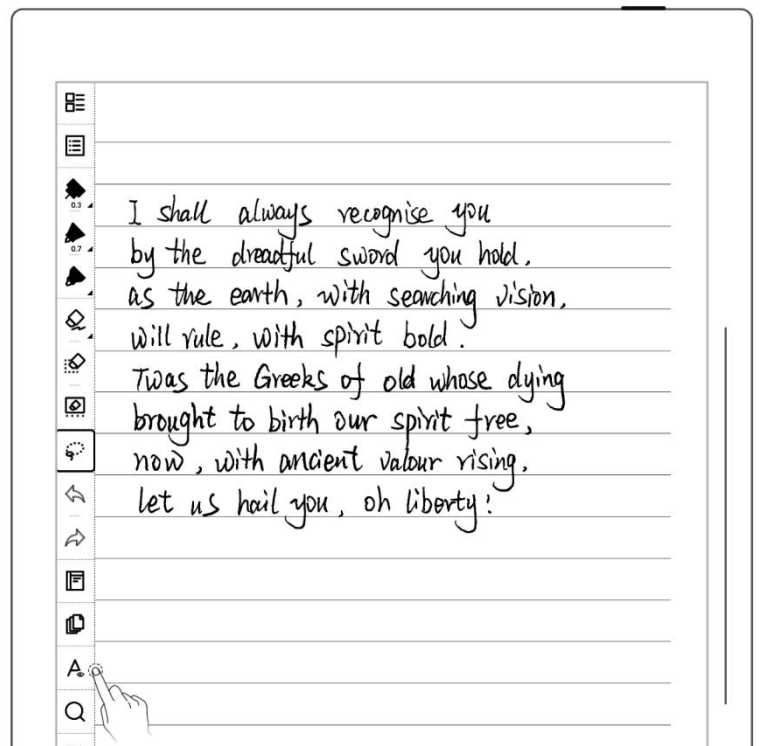 0.3
0.7
I shall always recognise you
by the dreadful sword you hold,
as the earth, with searching vision,
will rule, with spirit bold.
Twas the Greeks of old whose dying
brought to birth our spirit free,
now, with ancient valour rising,
let us hail you, oh liberty!